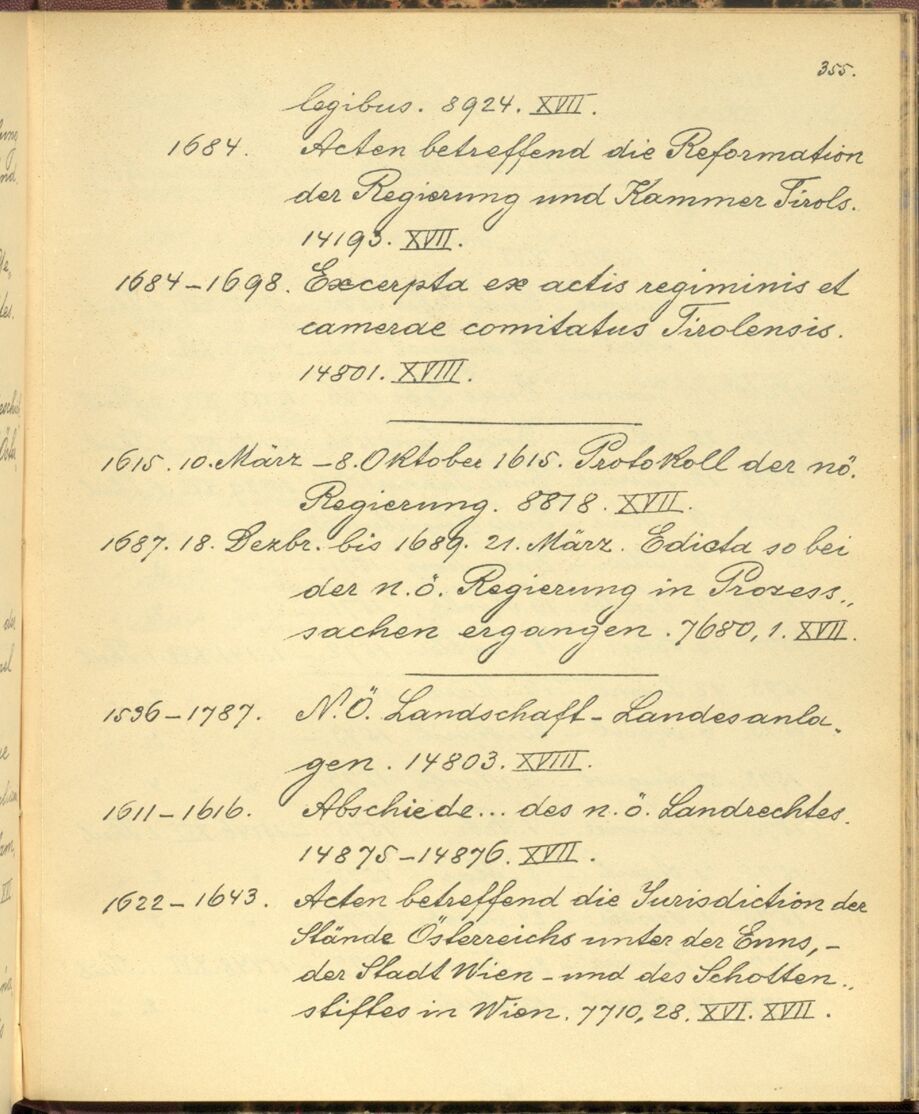 355.
legibus. 8924. XVII.
1684. Acten betreffend die Reformation
der Regierung und Kammer Tirols.
14193. XVII.
1684-1698. Excerpta ex actis regiminis et
camerae comitatus Tirolensis.
14801. XVIII.
1615. 10. März - 8. Oktober 1615. Protokoll der nö.
Regierung. 8818. XVII.
1687. 18. Dezbr. bis 1689. 21. März. Edicta so bei
der n. ö. Regierung in Prozess„
sachen ergangen. 7680, 1. XVII.
1596-1787. N. Ö. Landschaft - Landesanla„
gen. 14803. XVIII.
1611-1616. Abschiede... des n. ö. Landrechtes.
14875-14876. XVII.
1622-1643. Acten betreffend die Jurisdiction der
Stände Österreichs unter der Enns, -
der Stadt Wien - und des Schotten„
stiftes in Wien. 7710, 28. XVI. XVII.